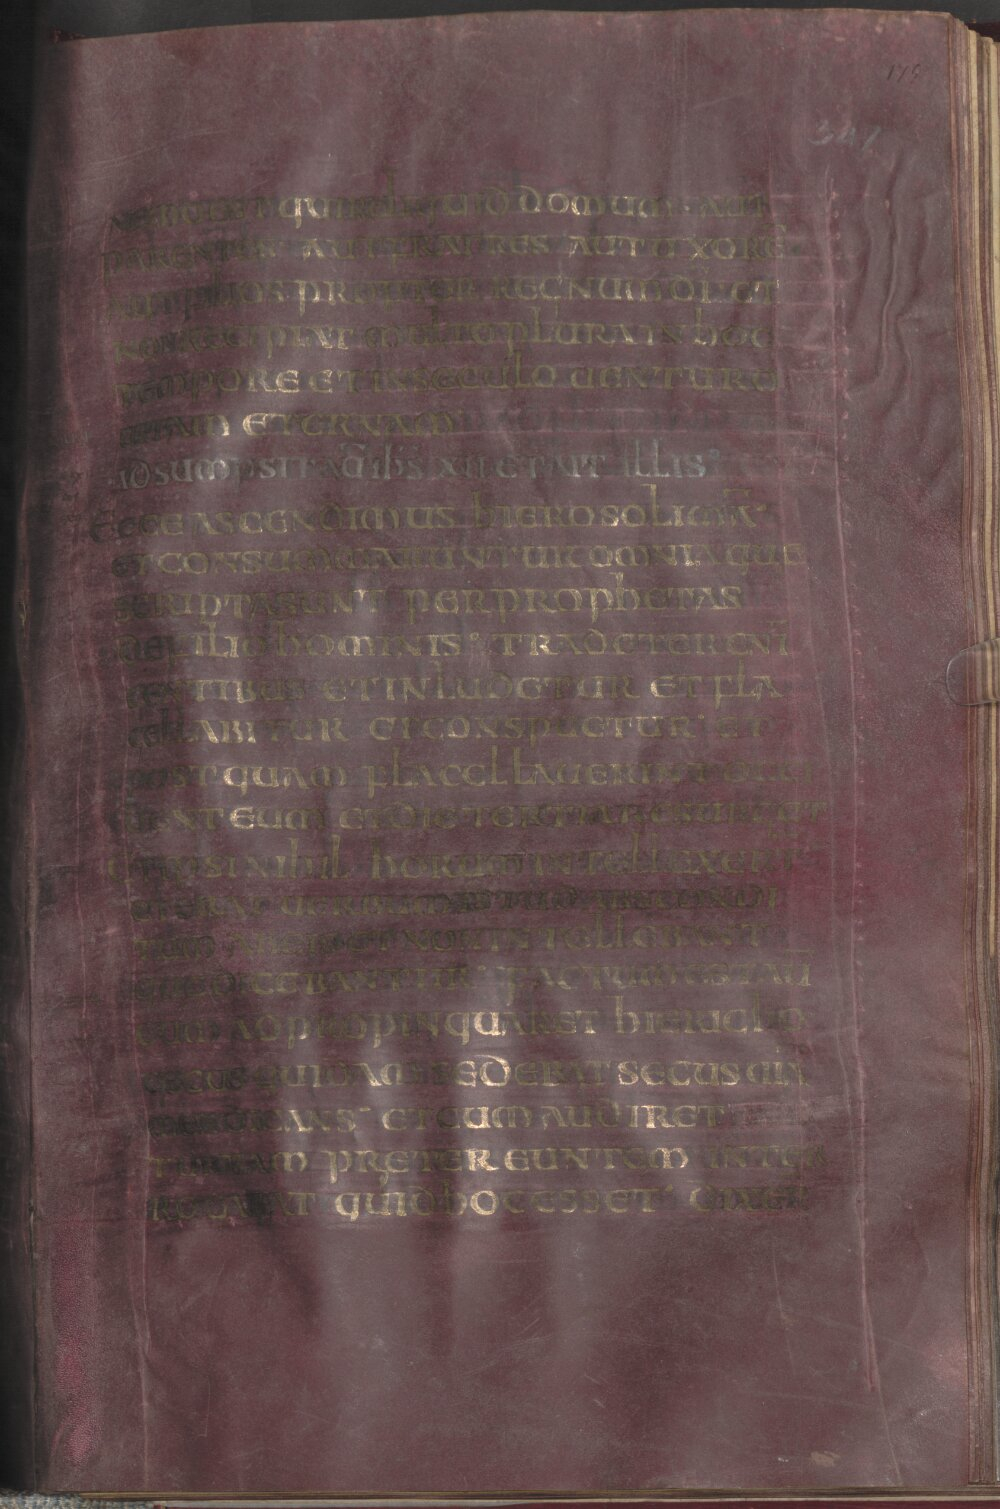 NEMO EST QUI RELIQUID DOMUM AUT
PARENTES AUT FRATRES AUT UXORE̅
AUT FILIOS PROPTER REGNUM DI̅ ET
NON RECIPIAT MULTO PLURA IN HOC
TEMPORE ET IN SECULO UENTURO
UITAM ETERNAM
ADSUMPSIT AU̅ IHS̅ XII ET AIT ILLIS
ECCE ASCENDIMUS HIEROSOLIMA̅
ET CONSUMMABUNTUR OMNIA QUE
SCRIPTA SUNT PER PROPHETAS
DE FILIO HOMINIS TRADETUR ENI̅
GENTIBUS ET INLUDETUR ET FLA
GELLABITUR ET CONSPUETUR ET
POSTQUAM FLAGELLAUERINT OCCI
DENT EUM ET DIE TERTIA RESURGET
ET IPSI NIHIL HORUM INTELLEXER̅T
ET ERAT UERBUM ISTUD ABSCONDI
TUM AB EIS ET NON INTELLEGEBANT
QUE DICEBANTUR FACTUM EST AU̅
CUM ADPROPINQUARET HIERICHO
CECUS QUIDAM SEDEBAT SECUS UIA̅
MENDICANS ET CUM AUDIRET
TURBAM PRETEREUNTEM INTER
ROGABAT QUID HOC ESSET DIXER